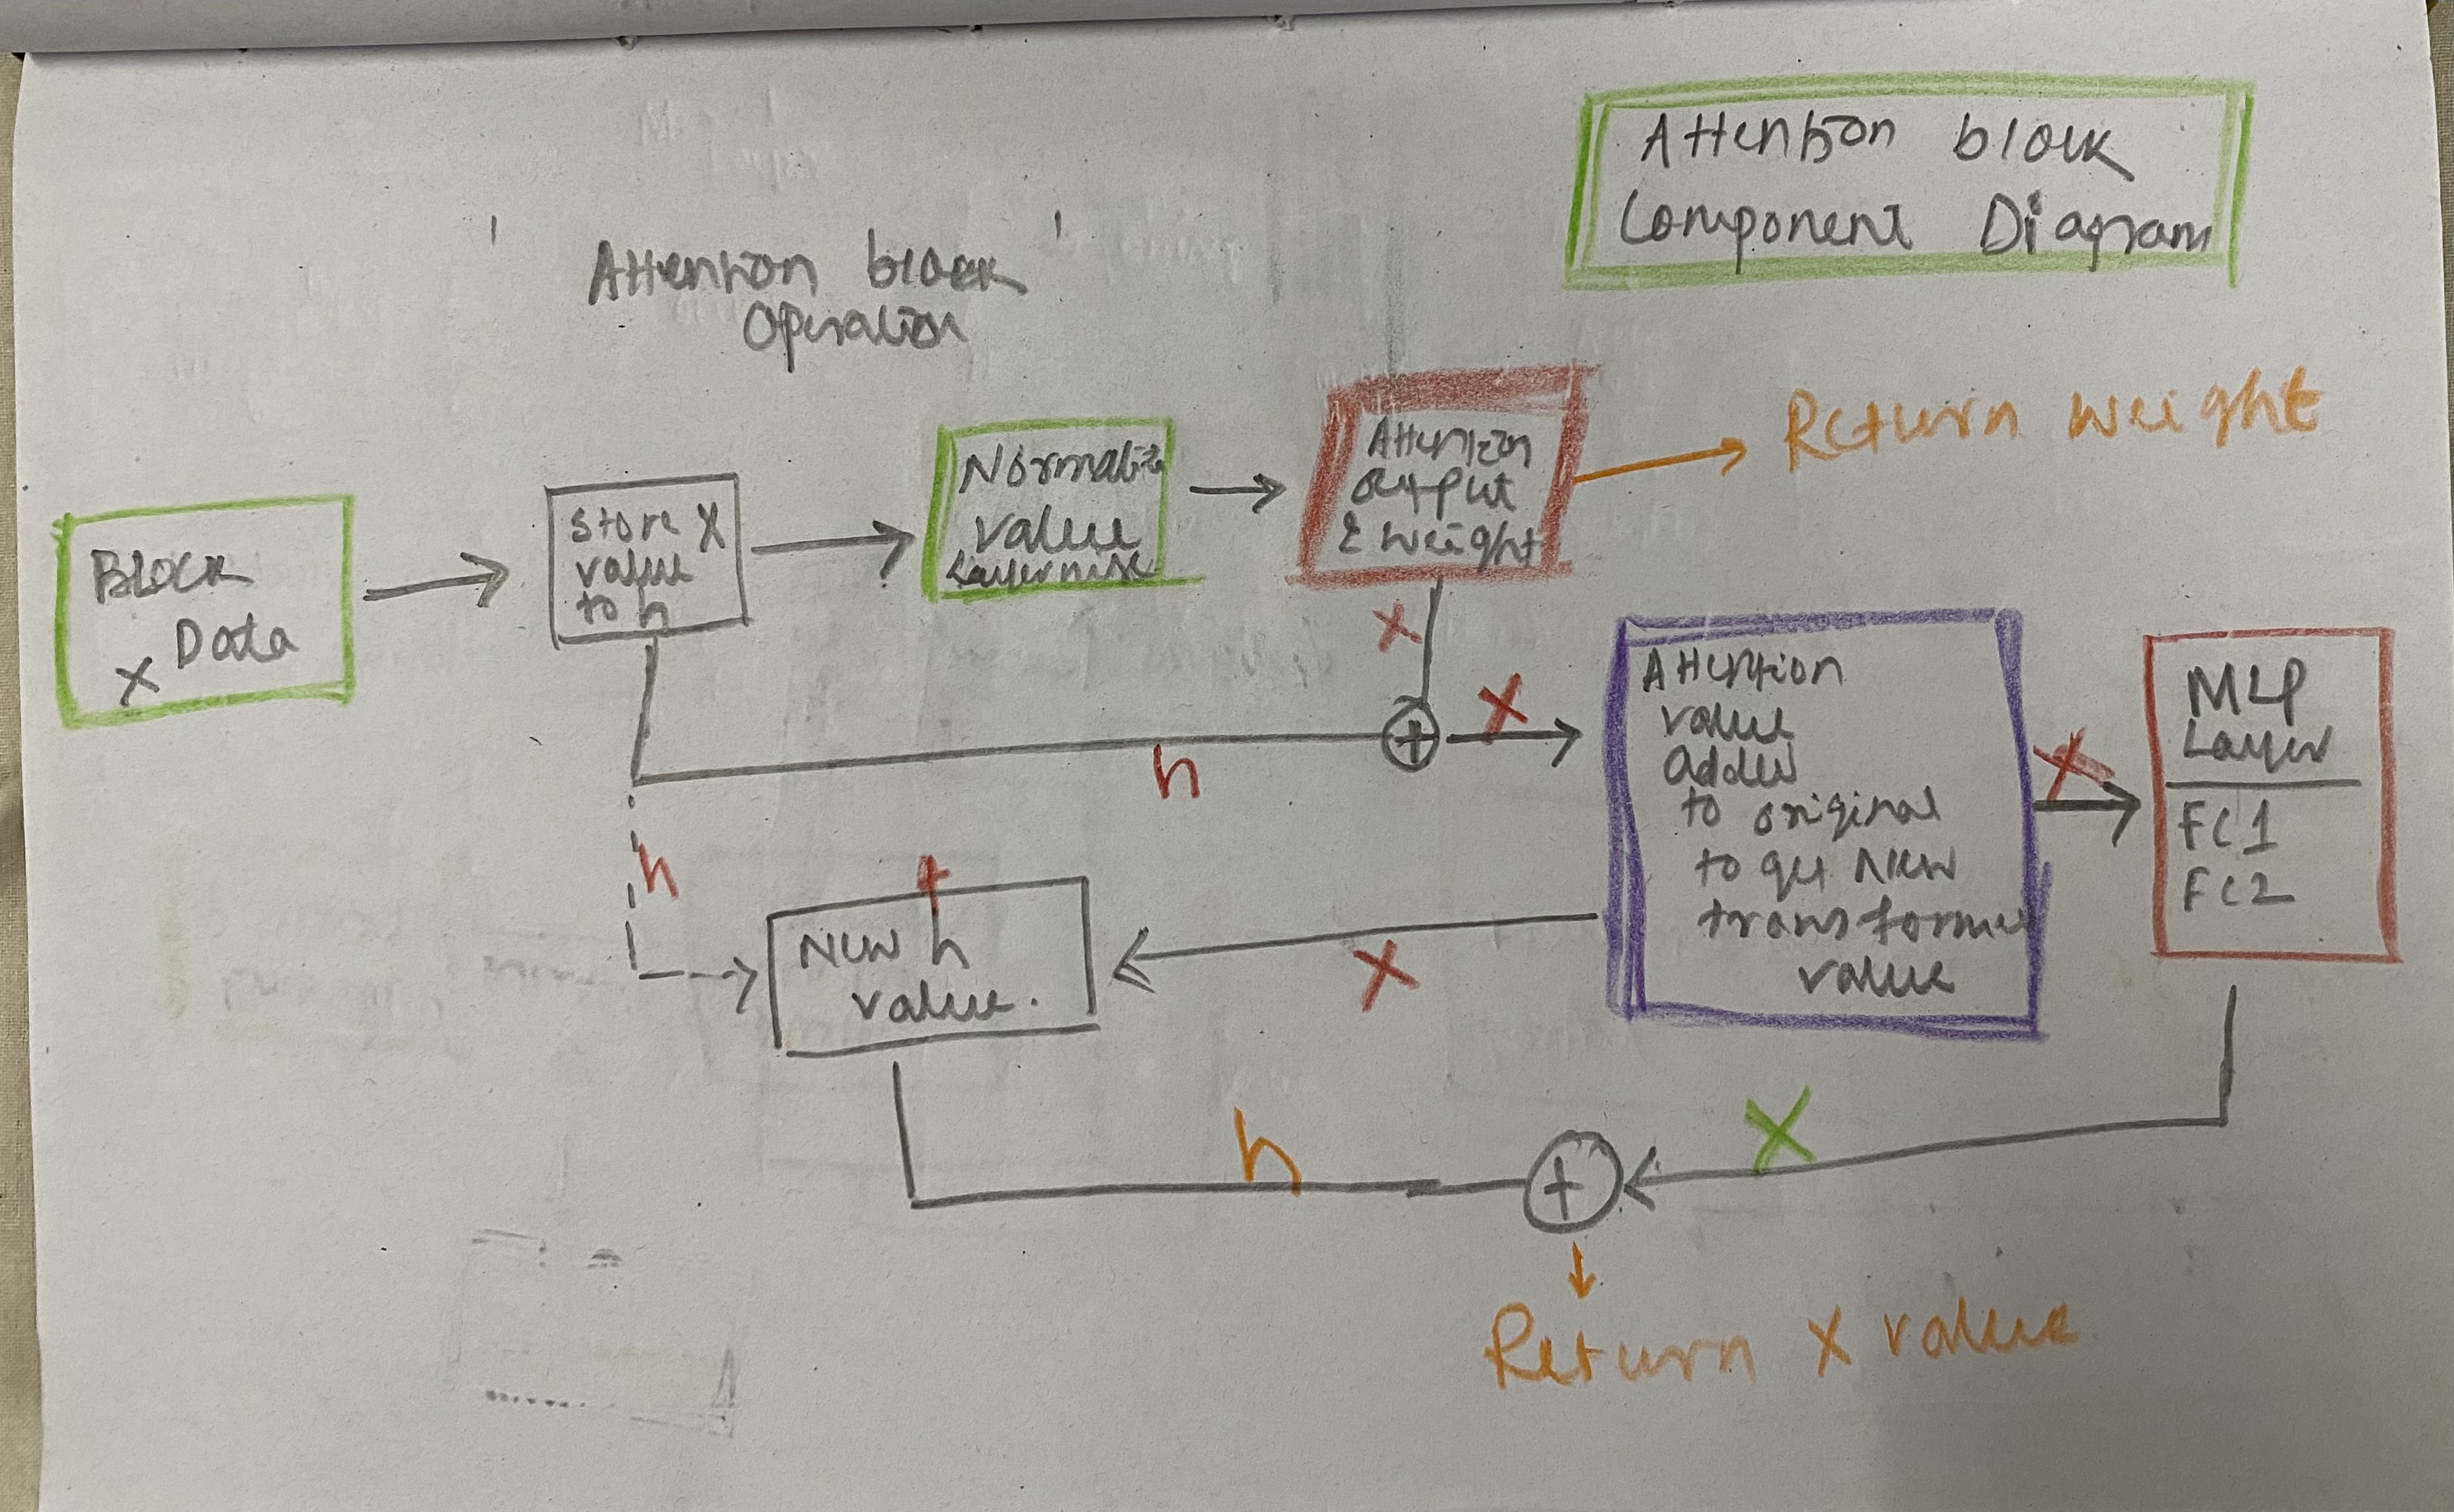 Attention block
Component Diagram
' Attention block '
Operation
Block
Data
X
Store X
value
to h
Normalize
value
Layerwise
Attention
output
& weight
Return weight
X
h
X
Attention
value
added
to original
to get new
transformer
value
X
MLP
Layer
FC1
FC2
h
New h
value.
X
h
X
+
+
Return X value